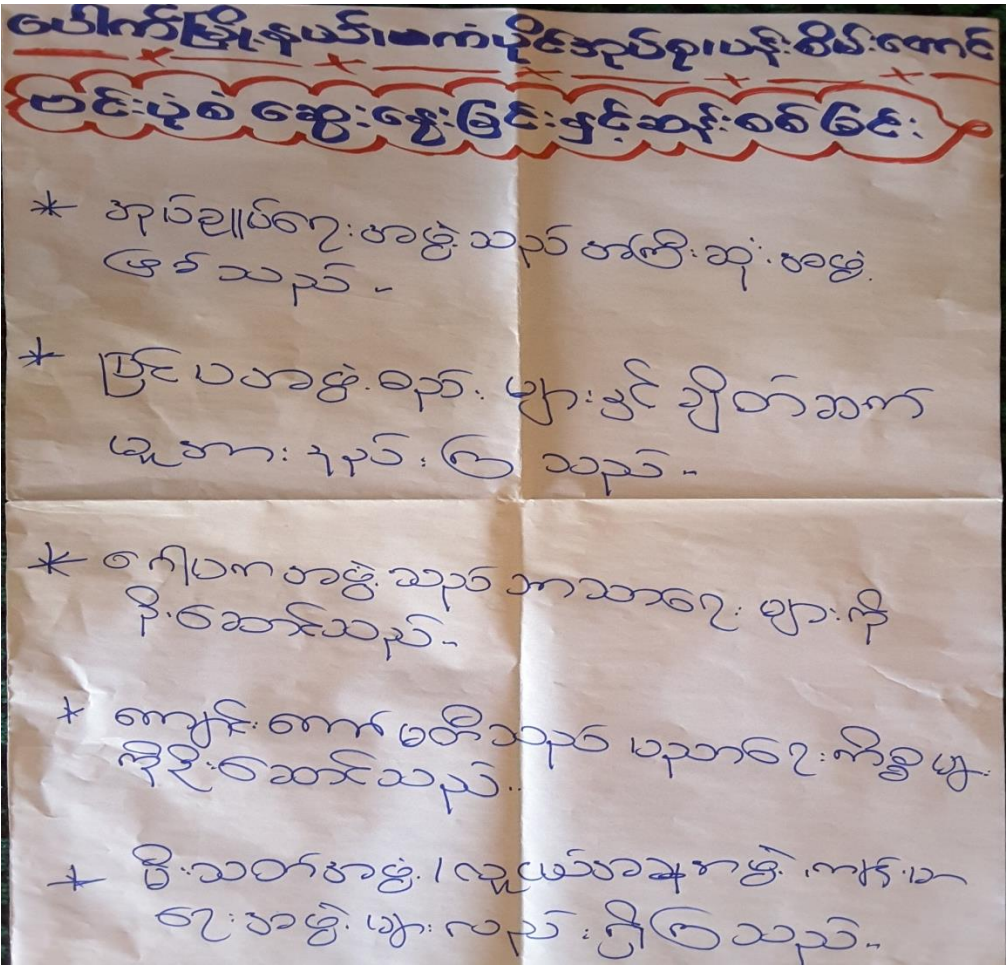 ပေါက်မြို့နယ်၊မကံပိုင်အုပ်စု၊ပန်းစိမ်းတောင်
ဗင်းပုံစံ ဆွေးနွေးခြင်းနှင့်ဆန်းစစ်ခြင်း
* အုပ်ချုပ်ရေးအဖွဲ့သည် အကြီးဆုံးအဖွဲ့
ဖြစ်သည်။
* ပြင်ပအဖွဲ့စည်းများနှင့် ချိတ်ဆက်
မှုအားနည်းကြသည်။
* ဂေါပကအဖွဲ့သည် ဘာသာရေးများကို
ဦးဆောင်သည်။
* ကျောင်းကော်မတီသည် ပညာရေးကိစ္စများ
ကိုဦးဆောင်သည်။
* မီးသတ်အဖွဲ့၊လူငယ်အဖွဲ့၊ကျန်းမာ
ရေးအဖွဲ့များလည်းရှိကြသည်။